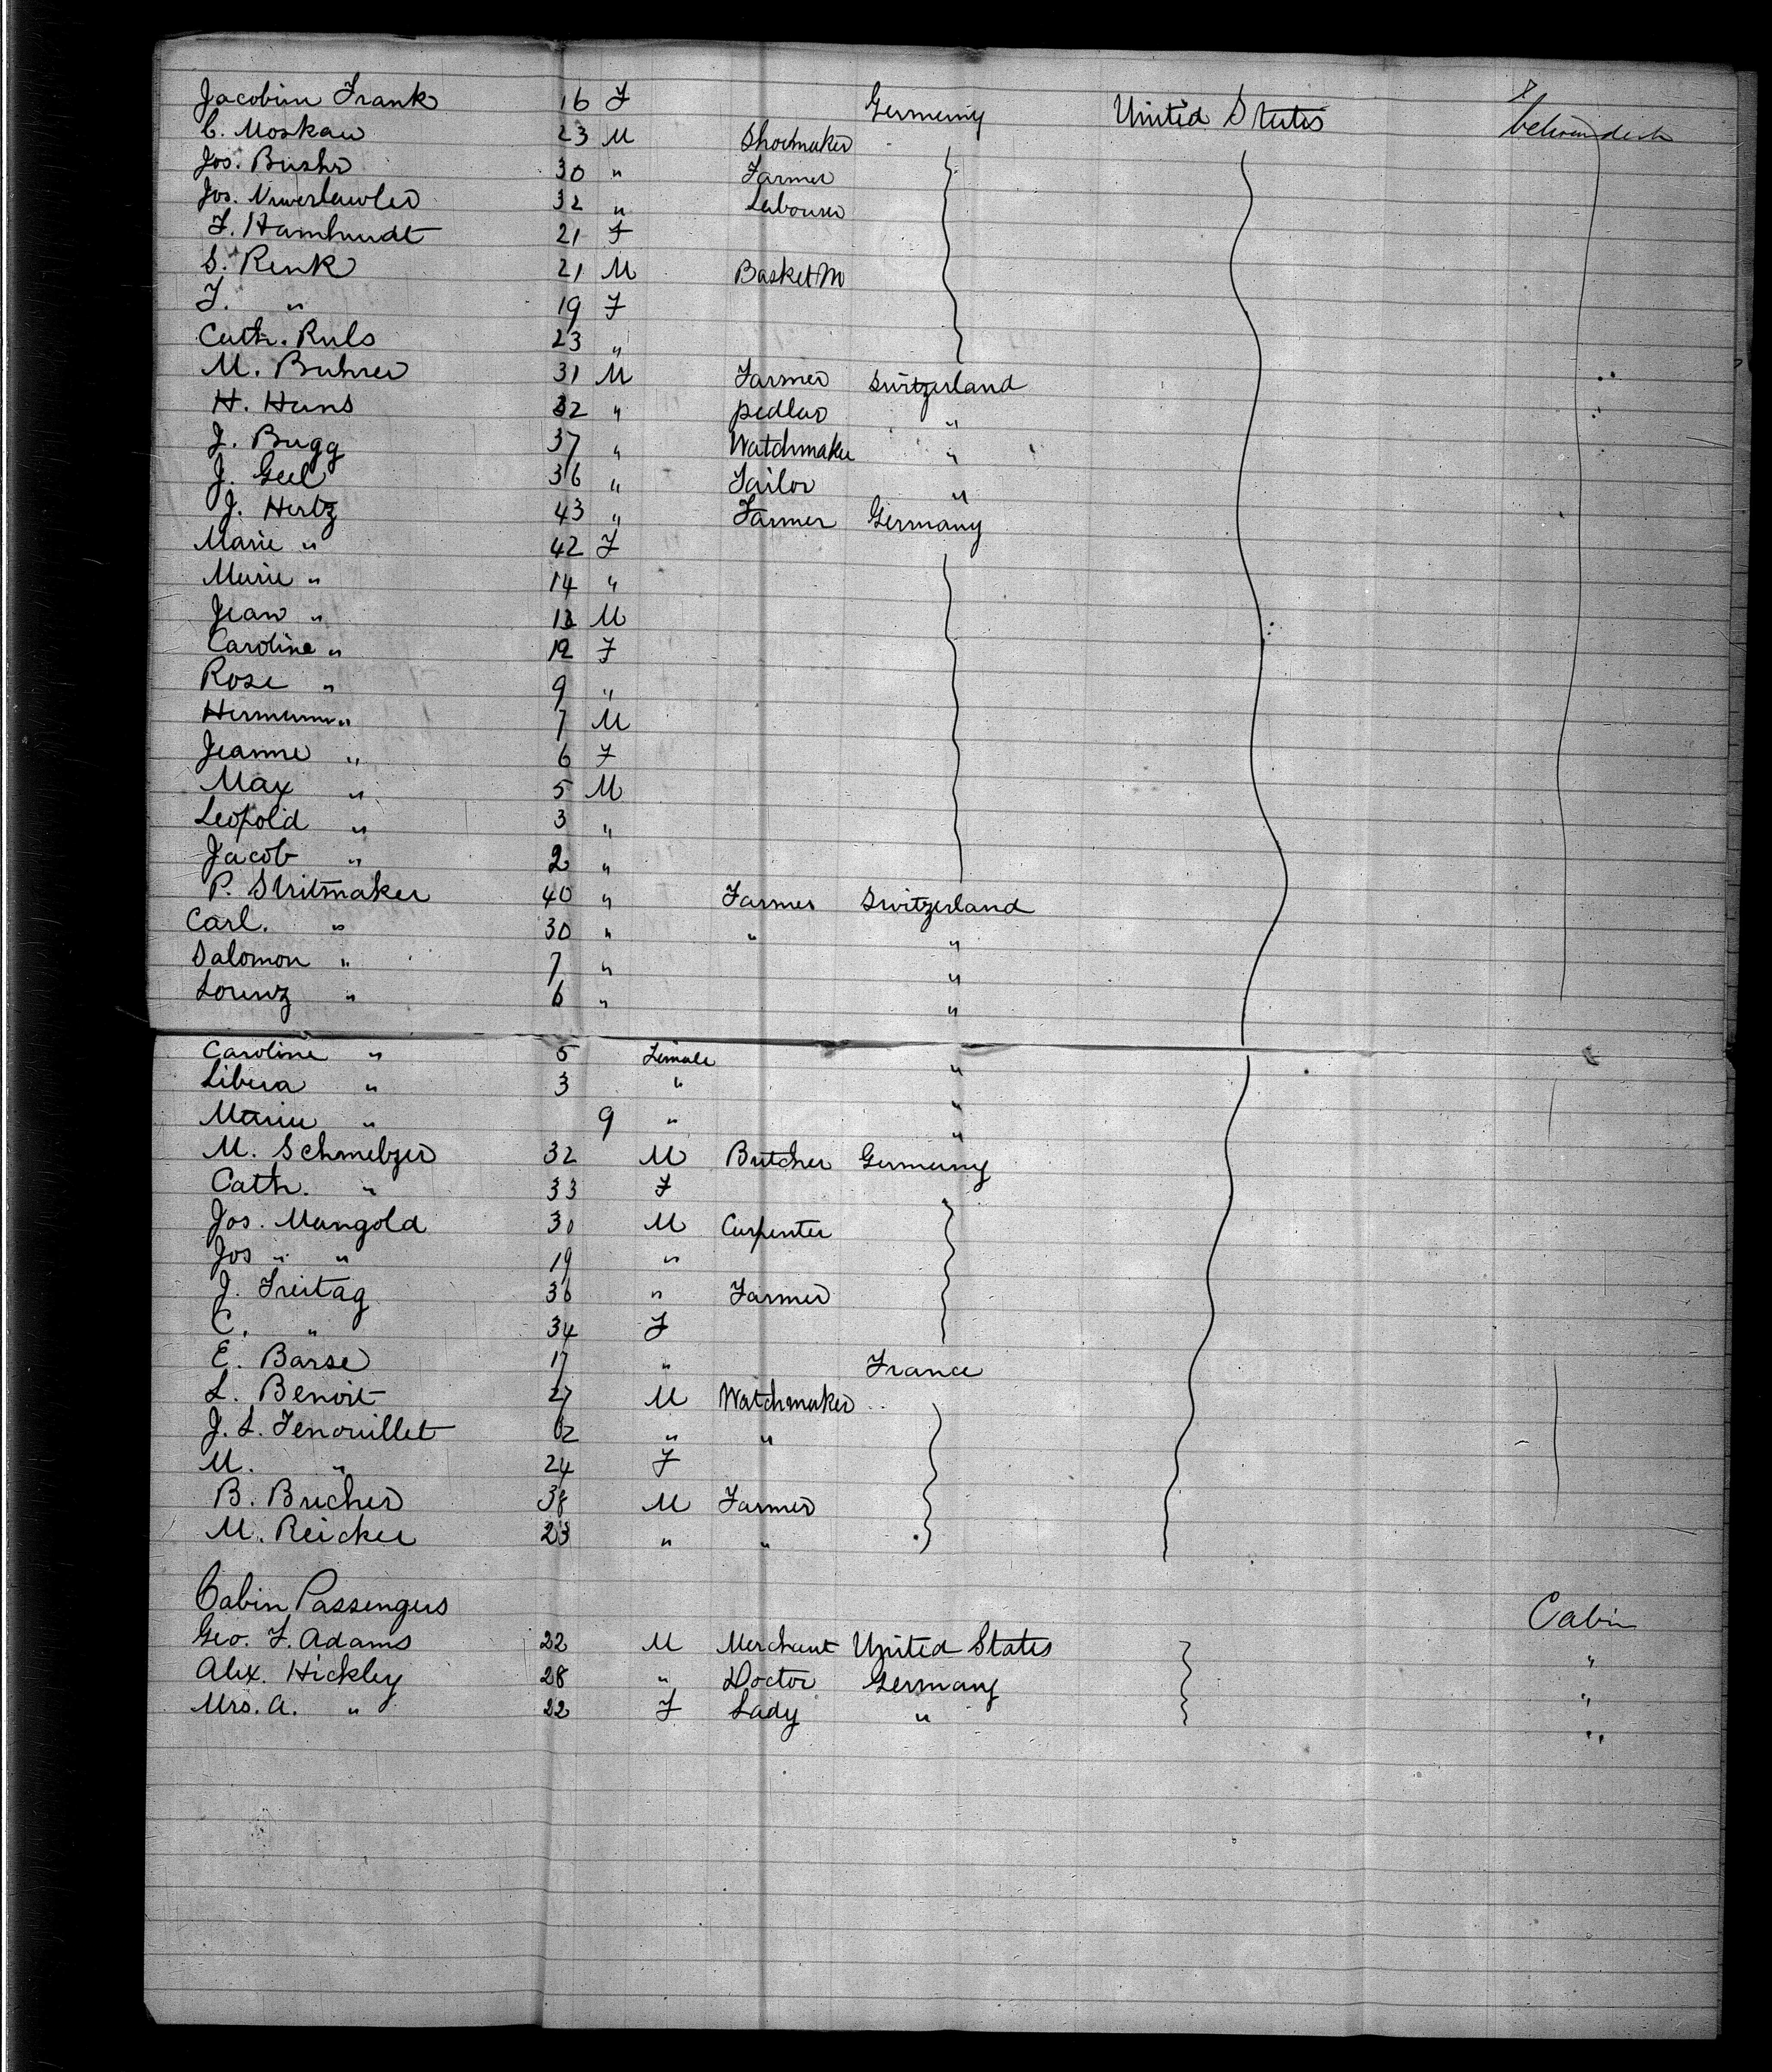 Jacobin Frank 16 F Germany United States betwendeck
C. Moskau 23 M Shoemaker
Jos. Bushr 30 " Farmer
Jos. 32 " Labourer
F. Hamhundt 21 F
S. Renk 21 M Basket M
F. " 19 F
Cath. Ruls 23 "
M. Buhrer 31 M Farmer Switzerland
H. Hans 32 " pedlar "
J. Bugg 37 " Watchmaker "
J. Geel 36 " Tailor "
J. Hertz 43 " Farmer Germany
Marie " 42 F
Marie " 14 "
Jean " 13 M
Caroline " 12 F
Rose " 9 "
Hermann " 7 M
Jeanne " 6 F
Max " 5 M
Leopold " 3 "
Jacob " 2 "
P. Stritmaker 40 " Farmer Switzerland
Carl. " 30 " " "
Salomon " 7 " "
Lorenz " 6 " "
Caroline " 5 Female "
Libera " 3 " "
Marie " 9 " "
M. Schmelzer 32 M Butcher Germany
Cath. " 33 F
Jos. Mangold 30 M Carpenter
Jos " " 19 "
J. Freitag 36 " Farmer
C. " 34 F
E. Barse 17 " France
L. Benoit 27 M Watchmaker
J. L. Fenouillet 62 " "
M. " 24 F
B. Bucher 38 M Farmer
M. Reicker 23 " "
Cabin Passengers Cabin
Geo. F. Adams 22 M Merchant United States "
Alex. Hickley 28 " Doctor Germany "
Mrs. A. " 22 F Lady " "